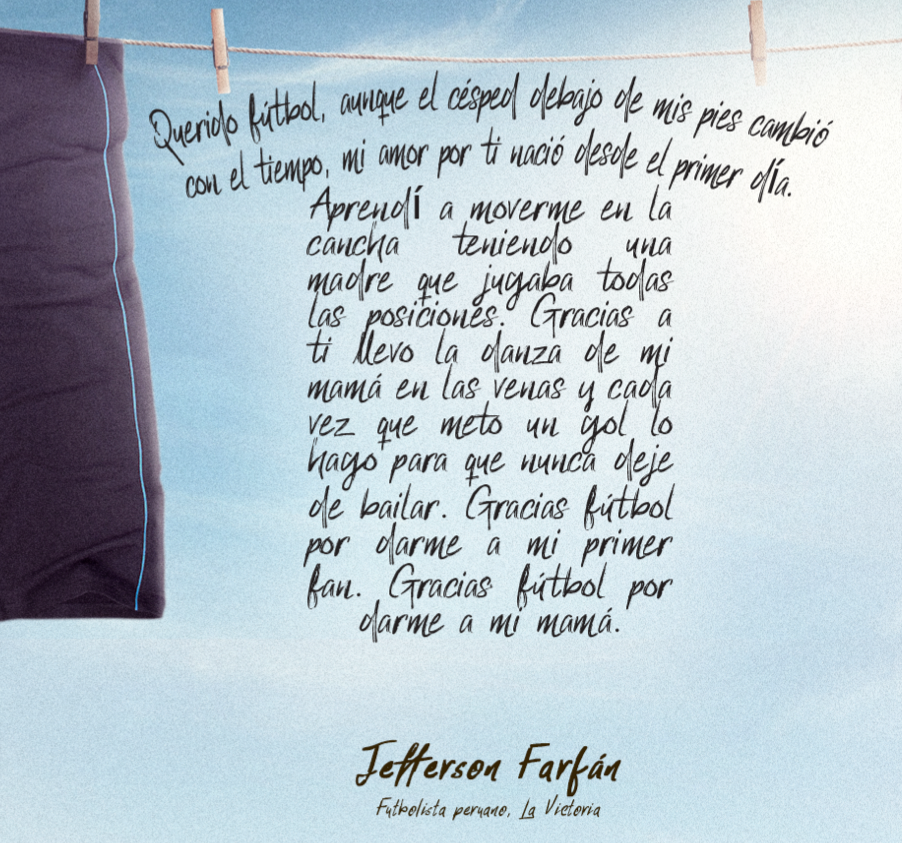 Querido fútbol, aunque el césped debajo de mis pies cambió
con el tiempo, mi amor por ti nació desde el primer día.
Aprendí a moverme en la
cancha teniendo una
madre que jugaba todas
las posiciones. Gracias a
ti llevo la danza de mi
mamá en las venas y cada
vez que meto un gol lo
hago para que nunca deje
de bailar. Gracias fútbol
por darme a mi primer
fan. Gracias fútbol por
darme a mi mamá.
Jefferson Farfán
Futbolista peruano, La Victoria